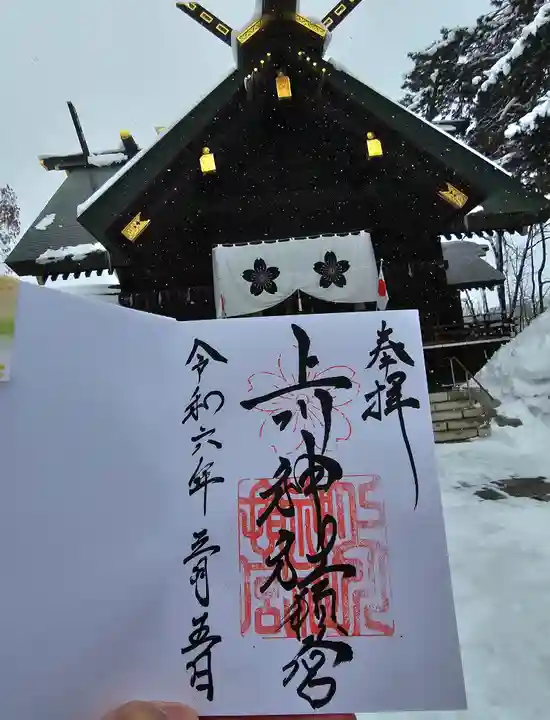 奉拝
上川神社頓宮
令和六年 三月五日